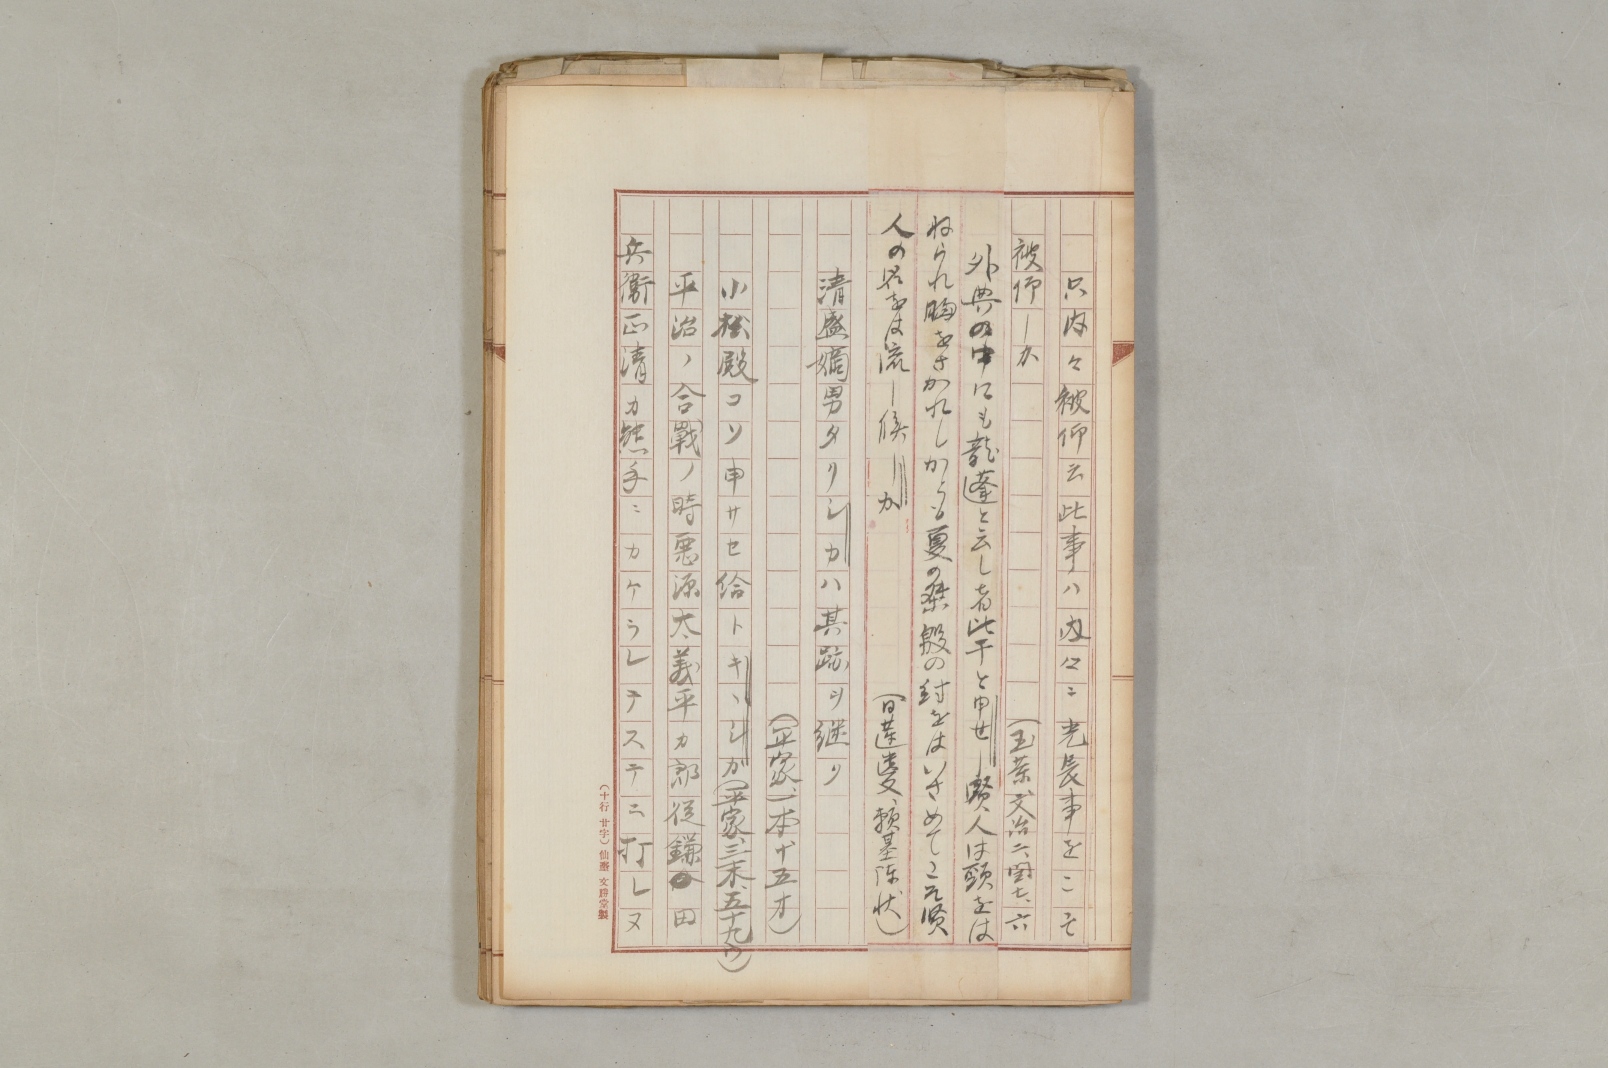 只内々被仰云此事ハ内々ニ光長事をこそ
被仰しか　　　　(玉葉、文治二、閏七、六
外典の中にも龍蓬と云し者此干と申せし賢人は頭をは
ねられ胸をさかれしかとも夏の桀殷の紂をはいさめてこそ賢
人の名をは流し候しか　　　　(日蓮遺文、頼基陳状)
清盛嫡男タリシカハ其跡ヲ継リ
(平家、一本、十五オ)
小松殿コソ申サセ給トキヽシが(平家、三末、五十九ウ)
平治ノ合戦ノ時悪源太義平カ郎従鎌田
兵衛正清カ熊手ニカケラレテステニ打レヌ
(十行 廿字) 仙臺 文勝堂製